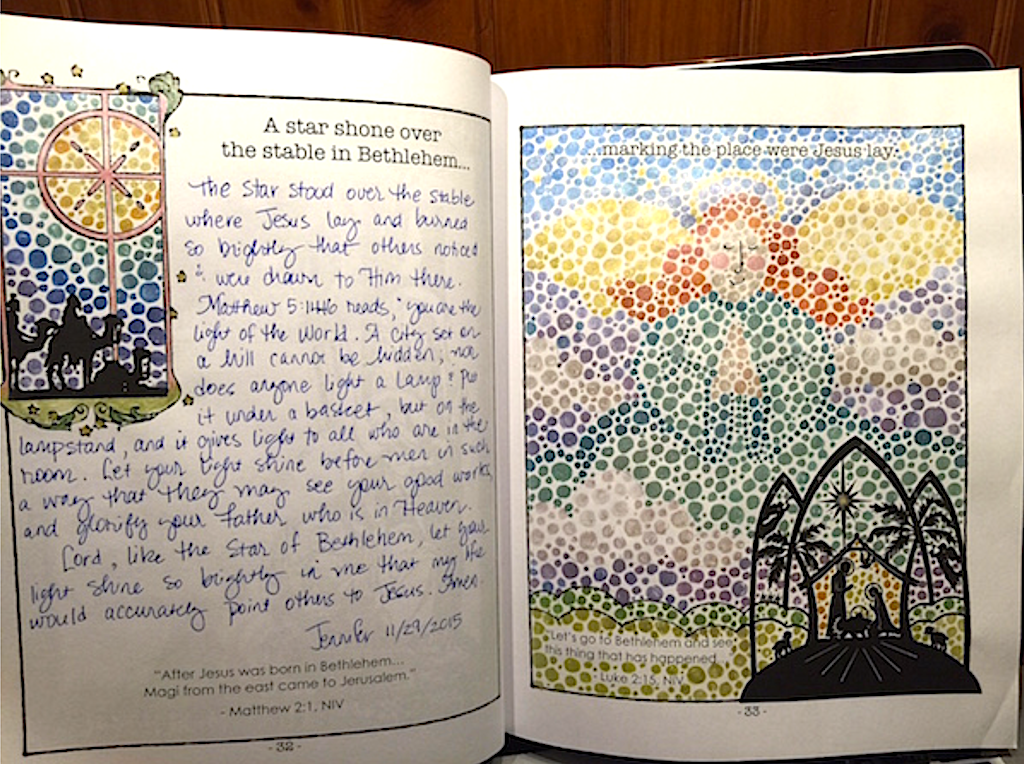 A star shone over
the stable in Bethlehem...
the star stood over the stable
where Jesus lay and burned
so brightly that others noticed
& were drawn to Him there.
Matthew 5:14-16 reads, "you are the
light of the world. A city set on
a hill cannot be hidden; nor
does anyone light a lamp & Put
it under a basket, but on the
lampstand, and it gives light to all who are in the
room. Let your light shine before men in such
a way that they may see your good works,
and glorify your Father who is in Heaven.
Lord, like the Star of Bethlehem, let your
light shine so brightly in me that my life
would accurately point others to Jesus. Amen.
Jennifer 11/29/2015
"After Jesus was born in Bethlehem...
Magi from the east came to Jerusalem."
- Matthew 2:1, NIV
- 32 -
...marking the place were Jesus lay.
"Let's go to Bethlehem and see
this thing that has happened...
- Luke 2:15, NIV
- 33 -